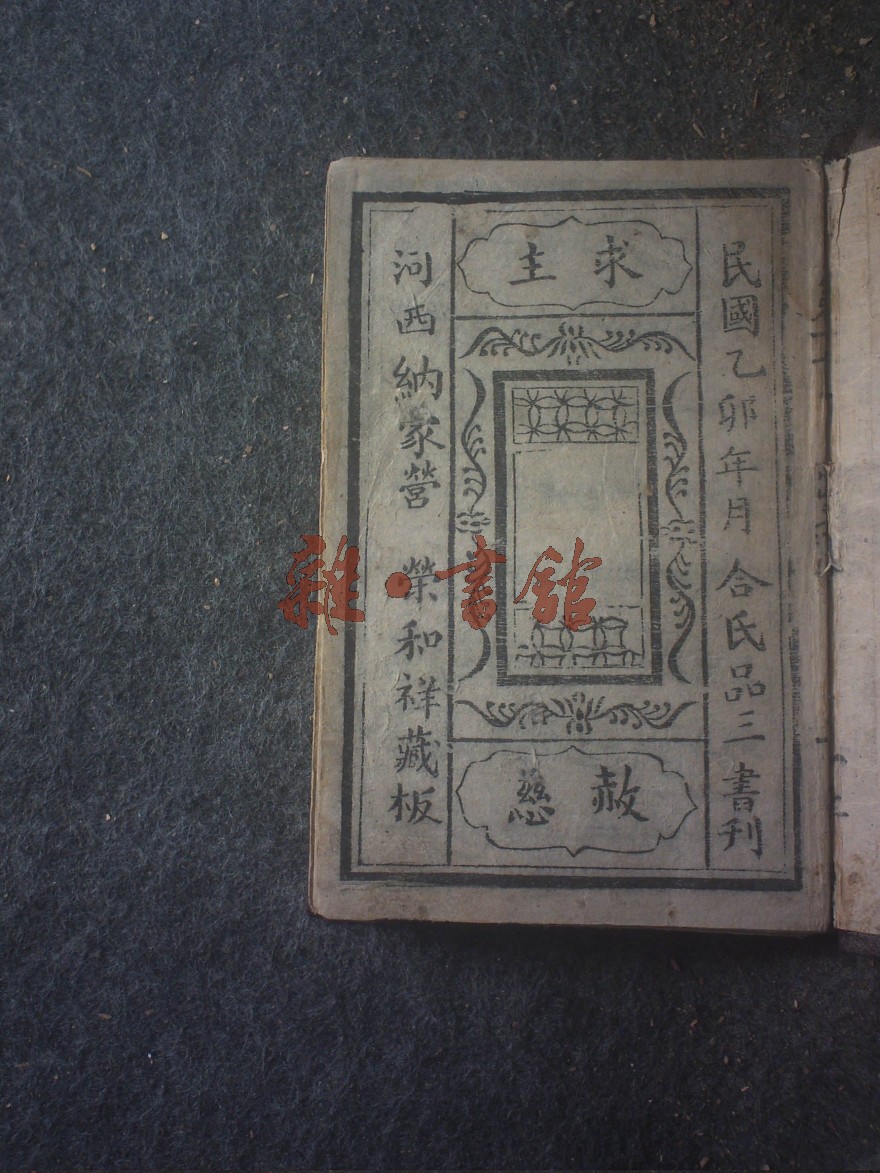 民國乙卯年月 合氏品三書刊
求主
赦慈
河西納家營 榮和祥藏板
雜·書館